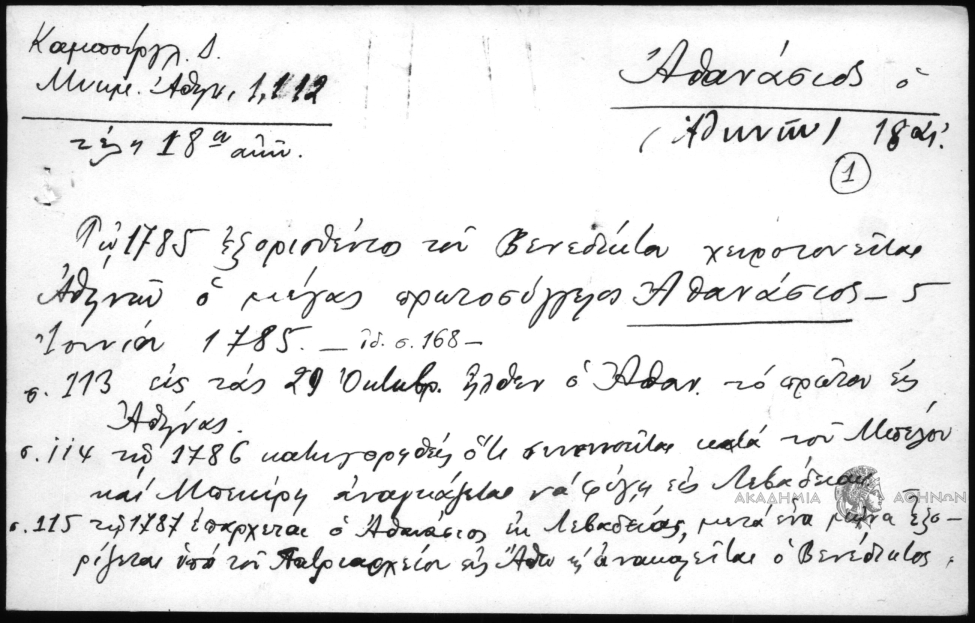 Καμπούργλ. Δ.
Μνημ. Ἀθην, 1, 112
τέλη 18ου αἰῶν.
Ἀθανάσιος ὁ
(Ἀθηνῶν) 18 αἰ.
1
Τῷ 1785 ἐξορισθέντος τοῦ Βενεδίκτου χειροτονεῖται
Ἀθηνῶν ὁ μέγας πρωτοσύγγελος Ἀθανάσιος – 5
Ἰουνίου 1785. – ἰδ. σ. 168 –
σ. 113 εἰς τάς 29 Ὀκτωβρ. ἦλθεν ὁ Ἀθαν. τό πρῶτον εἰς
Ἀθήνας.
σ. 114 τῷ 1786 κατηγορηθείς ὅτι συνεννοεῖται κατά τοῦ Μπέλου
καί Μπεκίρη ἀναγκάζεται νά φύγῃ εἰς Λεβάδειαν
σ. 115 τῷ 1787 ἐπαρχεται ὁ Ἀθανάσιος ἐκ Λεβαδείας, μετά ἕνα μῆνα ἐξο-
ρίζεται ὑπό τοῦ Πατριαρχείου εἰς Ἄθω κ ἀνακαλεῖται ὁ Βενέδικτος.
ΑΚΑΔΗΜΙΑ ΑΘΗΝΩΝ